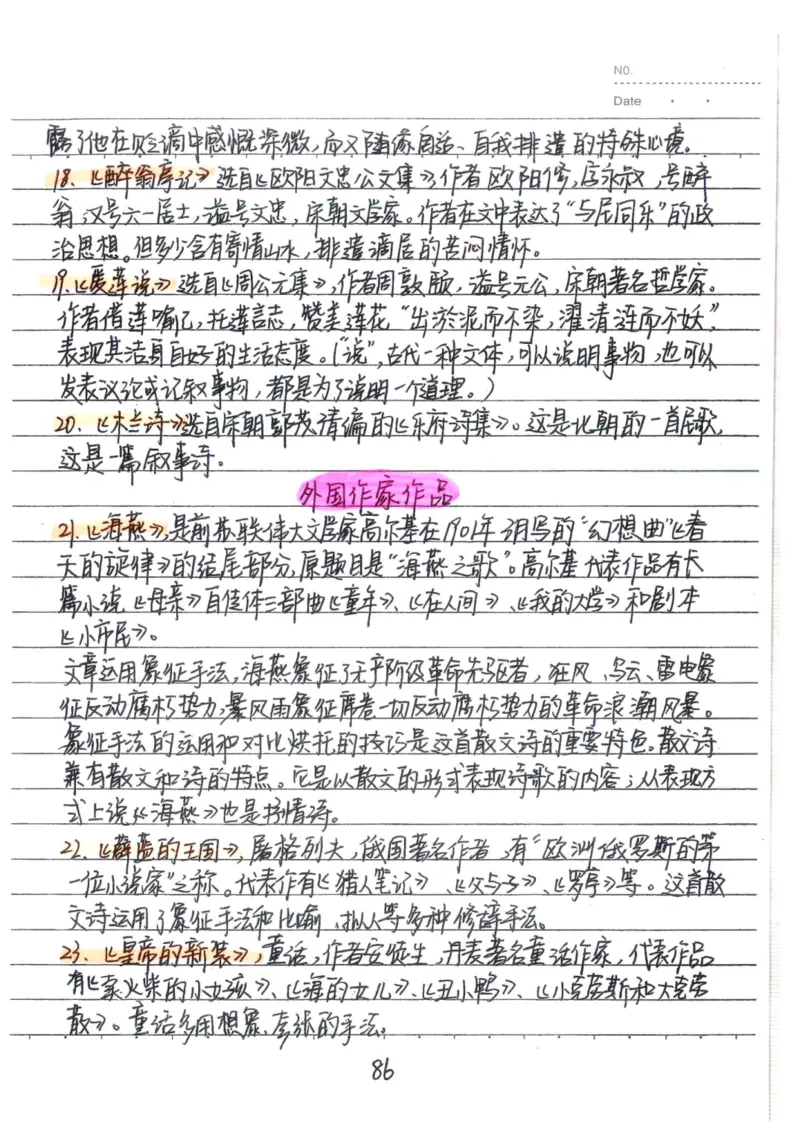 NO.
Date
露了他在贬谪中感慨深微,而又随缘自适、自我排遣的特殊心境。
18.《醉翁亭记》选自《欧阳文忠公文集》,作者欧阳修,字永叔,号醉
翁,又号六一居士,谥号文忠,宋朝文学家。作者在文中表达了“与民同乐”的政
治思想。但多少含有寄情山水,排遣谪居的苦闷情怀。
19.《爱莲说》选自《周公元集》,作者周敦颐,谥号元公,宋朝著名哲学家。
作者借莲喻己,托莲言志,赞美莲花“出淤泥而不染,濯清涟而不妖”,
表现其洁身自好的生活态度。(“说”,古代一种文体,可以说明事物,也可以
发表议论或记叙事物,都是为了说明一个道理。)
20.《木兰诗》选自宋朝郭茂倩编的《乐府诗集》。这是北朝的一首民歌,
这是一篇叙事诗。
外国作家作品
21.《海燕》,是前苏联伟大文学家高尔基在1901年3月写的“幻想曲”《春
天的旋律》的结尾部分,原题目是“海燕之歌”。高尔基代表作品有长
篇小说《母亲》自传体三部曲《童年》、《在人间》、《我的大学》和剧本
《小市民》。
文章运用象征手法,海燕象征了无产阶级革命先驱者,狂风、乌云、雷电象
征反动腐朽势力,暴风雨象征席卷一切反动腐朽势力的革命浪潮风暴。
象征手法的运用和对比烘托的技巧是这首散文诗的重要特色。散文诗
兼有散文和诗的特点。它是以散文的形式表现诗歌的内容;从表现方
式上说《海燕》也是抒情诗。
22.《蔚蓝的王国》,屠格列夫,俄国著名作者,有“欧洲俄罗斯的第
一位小说家”之称。代表作有《猎人笔记》、《父与子》、《罗亭》等。这首散
文诗运用了象征手法和比喻、拟人等多种修辞手法。
23.《皇帝的新装》,童话,作者安徒生,丹麦著名童话作家,代表作品
有《卖火柴的小女孩》、《海的女儿》、《丑小鸭》、《小克劳斯和大克劳
散》。童话多用想象、夸张的手法。
86